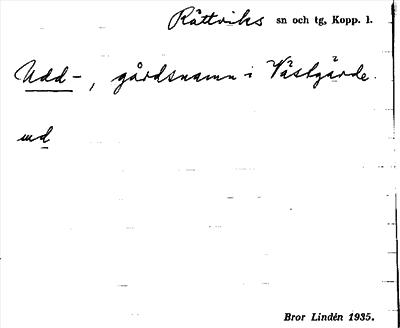 Rättviks sn och tg, Kopp. l.
Udd-, gårdsnamn i Västgärde.
ud
Bror Lindén 1935.